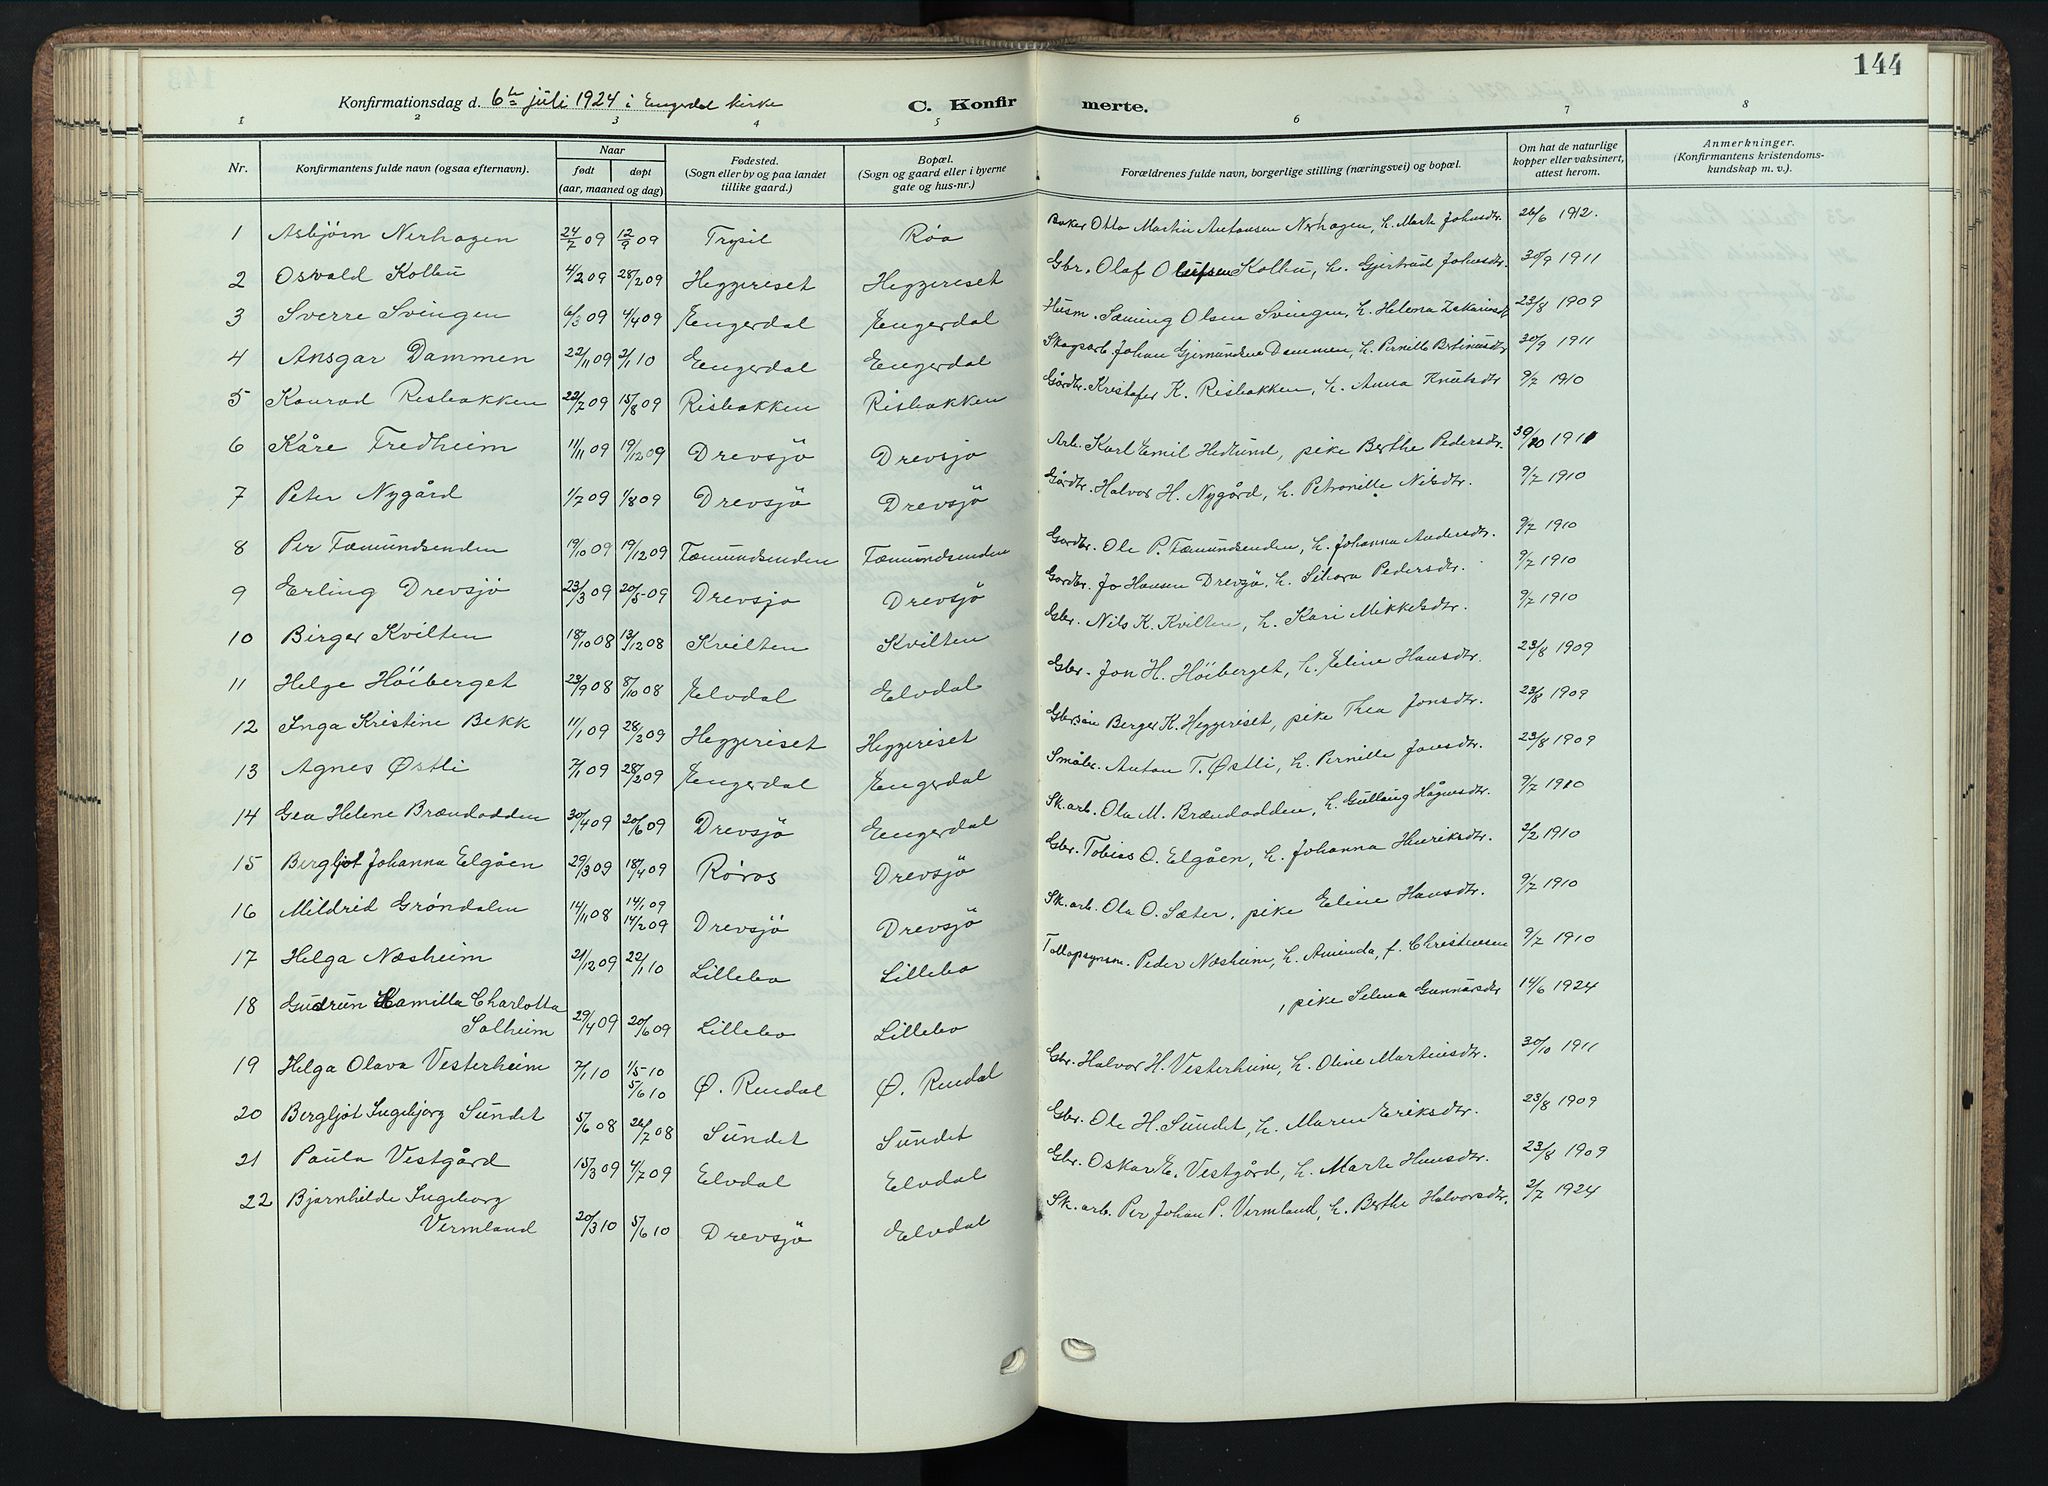 144
Konfirmationsdag d. 6te juli 1924 i Engerdal kirke
C. Konfirmerte.
1 2 3 4 5 6 7 8
Nr. Konfirmantens fulde navn (ogsaa efternavn). Naar født døpt (aar, maaned og dag) Fødested. (Sogn eller by og paa landet tillike gaard.) Bopæl. (Sogn og gaard eller i byerne gate og hus-nr.) Forældrenes fulde navn, borgerlige stilling (næringsvei) og bopæl. Om hat de naturlige kopper eller vaksinert, attest herom. Anmerkninger. (Konfirmantens kristendomskundskap m. v.).
1 Asbjörn Nerhagen 24/7 09 12/9 09 Trysil Röa Baker Otto Martin Antonsen Nerhagen, h. Marte Johnsdtr. 26/6 1912.
2 Osvald Kolbu 4/2 09 28/2 09 Heggeriset Heggeriset Gbr. Olaf Olufsen Kolbu, h. Gjertrud Johnsdtr. 30/9 1911
3 Sverre Svingen 6/3 09 4/4 09 Engerdal Engerdal Husm. Sæming Olsen Svingen, h. Helena 23/8 1909
4 Ansgar Dammen 22/11 09 2/1 10 Engerdal Engerdal Skogsarb. Johan Gjermundsen Dammen, h. Pernille Bertinusdtr 30/9 1911
5 Konrad Risbakken 22/7 09 15/8 09 Risbakken Risbakken Gårdbr. Kristofer K. Risbakken, h. Anna Knutsdtr 9/7 1910
6 Kåre Fredheim 11/11 09 19/12 09 Drevsjö Drevsjö Arb. Karl Emil Hedlund, pike Berthe Pedersdtr. 30/10 1911
7 Peter Nygård 1/7 09 1/8 09 Drevsjö Drevsjö Gårdbr. Halvor H. Nygård, h. Petronille Nilsdtr. 9/7 1910
8 Per Fæmundsenden 19/10 09 19/12 09 Fæmundsenden Fæmundsenden Gårdbr. Ole P. Fæmundsenden, h. Johanna Andersdtr. 9/7 1910
9 Erling Drevsjö 23/3 09 20/5 09 Drevsjö Drevsjö Gårdbr. Jo Hansen Drevsjö, h. Pedersdtr. 9/7 1910
10 Birger Kvilten 18/10 08 13/12 08 Kvilten Kvilten Gbr. Nils K. Kvilten, h. Kari Mikkelsdtr. 9/7 1910
11 Helge Höiberget 23/9 08 8/10 08 Elvdal Elvdal Gbr. Jon H. Höiberget, h. Eline Hansdtr. 23/8 1909
12 Inga Kristine Bekk 11/1 09 28/2 09 Heggeriset Heggeriset Gbr.sön Berger K. Heggeriset, pike Thea Jonsdtr. 23/8 1909
13 Agnes Østli 7/1 09 28/2 09 Engerdal Engerdal Småbr. Anton T. Østli, h. Pernille Jonsdtr. 23/8 1909
14 Gea Helene Brændodden 30/4 09 20/6 09 Drevsjö Engerdal Sk. arb. Ola M. Brændodden, h. Gullaug Hågensdtr. 9/7 1910
15 Bergljot Johanna Elgåen 29/3 09 18/4 09 Röros Drevsjö Gbr. Tobias O. Elgåen, h. Johanna Henriksdtr. 2/2 1910
16 Mildrid Gröndalen 14/11 08 14/1 09 14/2 09 Drevsjö Drevsjö Sk. arb. Ola O. Sæter, pike Eline Hansdtr. 9/7 1910
17 Helga Næsheim 21/12 09 22/1 10 Lillebo Lillebo Tollopsynsm. Peder Næsheim, h. Aminda, f. Christensen 9/7 1910
18 Gudrun Kamilla Charlotta Solheim 29/4 09 20/6 09 Lillebo Lillebo , pike Selma Gunnarsdtr 14/6 1924
19 Helga Olava Vesterheim 7/1 10 1/5 10 5/6 10 Ø. Rendal Ø. Rendal Gbr. Halvor H. Vesterheim, h. Oline Martinsdtr. 30/10 1911
20 Bergljot Ingebjorg Sundet 5/6 08 26/7 08 Sundet Sundet Gbr. Ole H. Sundet, h. Maren Eriksdtr. 23/8 1909
21 Paula Vestgård 15/3 09 4/7 09 Elvdal Elvdal Gbr. Oskar E. Vestgård, h. Marte Hansdtr. 23/8 1909
22 Bjarnhilde Ingeborg Vermland 20/3 10 5/6 10 Drevsjö Elvdal Sk. arb. Per Johan P. Vermland, h. Berthe Halvorsdtr. 2/7 1924